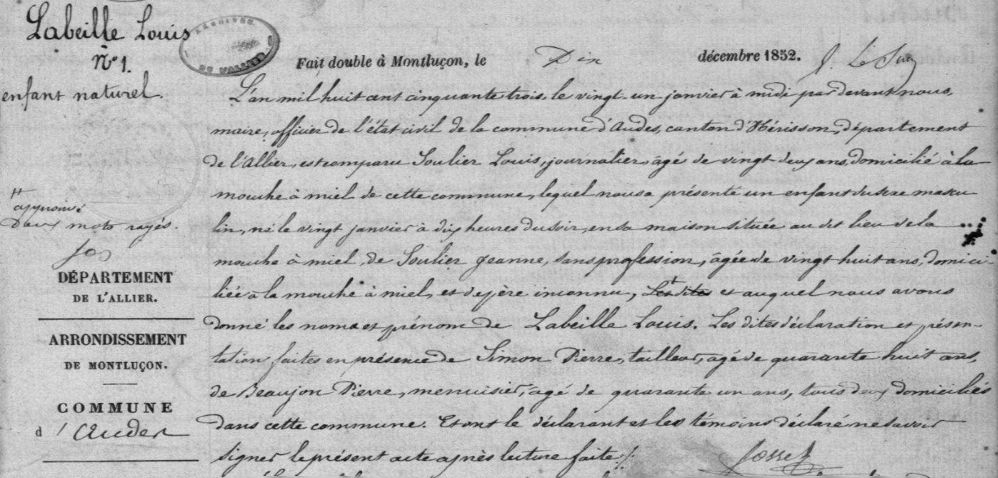 Labeille Louis
N° 1.
enfant naturel
ARCHIVES
DE L'ALLIER
Fait double à Montluçon, le Dix décembre 1852.
L'an mil huit cent cinquante trois, le vingt-un janvier à midi par devant nous
maire, officier de l'état civil de la commune d'Audes, canton d'Hérisson, département
de l'Allier, est comparu Soulier Louis, journalier, agé de vingt deux ans, domicilié à la
mouche à miel de cette commune, lequel nous a présenté un enfant du sexe mascu
lin, né le vingt janvier à dix heures du soir, en sa maison située au dit lieu de la
mouche à miel, de Soulier Jeanne, sans profession, âgée de vingt huit ans, domici-
liée à la mouche à miel, et de père inconnu, et auquel nous avons
donné les noms et prénom de Labeille Louis. Les dites déclaration et présen-
tation faites en présence de Simon Pierre, tailleur, agé de quarante huit ans,
de Beaujon Pierre, menuisier, agé de quarante un ans, tous deux domiciliés
dans cette commune. Et ont le déclarant et les témoins déclaré ne savoir
signer le présent acte après lecture faite ./.
deux mots rayés.
DÉPARTEMENT
DE L'ALLIER.
ARRONDISSEMENT
DE MONTLUÇON.
COMMUNE
d'Audes